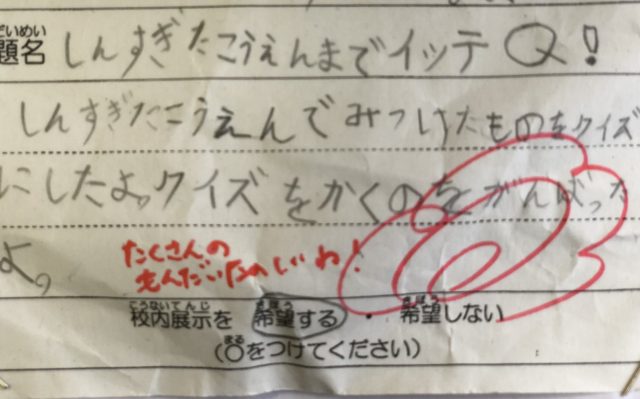 だいめい
題名 しんすぎたこうえんまでイッテQ!
しんすぎたこうえんでみつけたものをクイズ
にしたよ。クイズをかくのをがんばった
よ。
たくさんの
もんだいたのしいね!
こうないてんじ きぼう きぼう
校内展示を 希望する ・ 希望しない
まる
(○をつけてください)